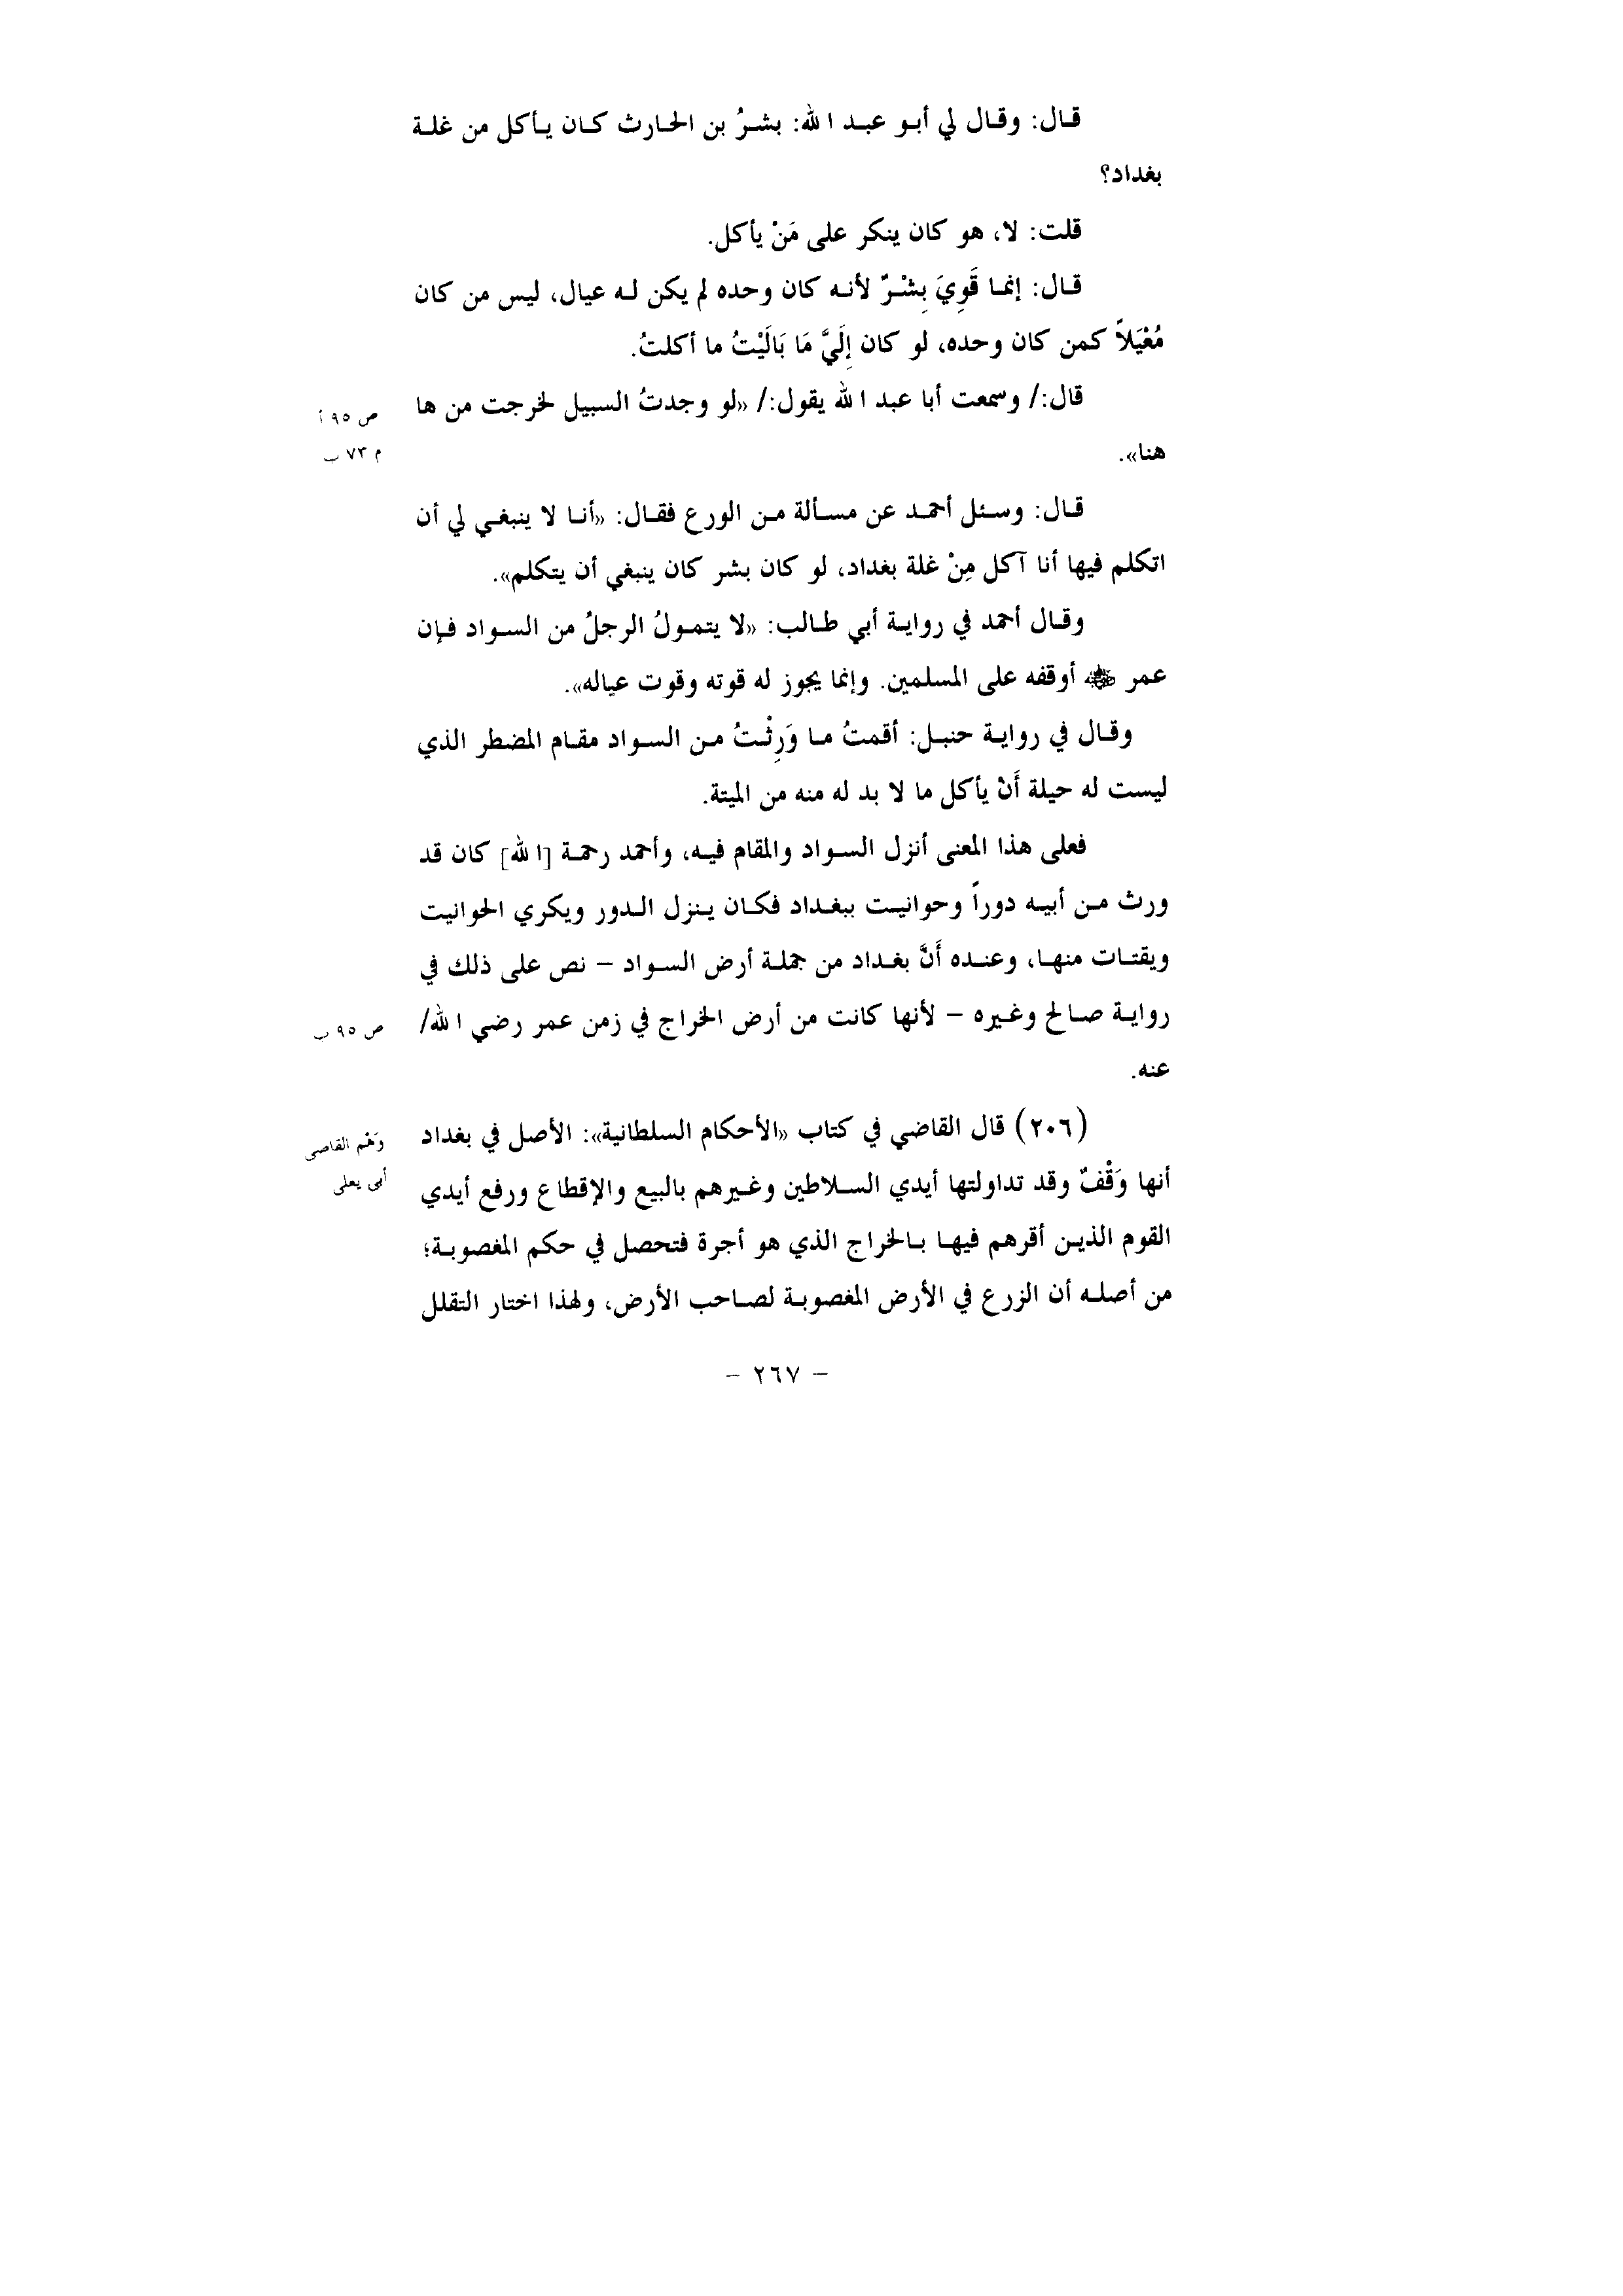 قال: وقال لي أبو عبد الله: بشرُ بن الحارث كان يأكل من غلة
بغداد؟
قلت: لا، هو كان ينكر على مَنْ يأكل.
قال: إنما قَوِيَ بِشْرٌ لأنه كان وحده لم يكن له عيال، ليس من كان
مُعْيَلاً كمن كان وحده، لو كان إِلَيَّ مَا بَالَيْتُ ما أكلتُ.
قال:/ وسمعت أبا عبد الله يقول:/ «لو وجدتُ السبيل لخرجت من ها
ص ٩٥ أ
هنا».
م ٧٣ ب
قال: وسئل أحمد عن مسألة من الورع فقال: «أنا لا ينبغي لي أن
اتكلم فيها أنا آكل مِنْ غلة بغداد، لو كان بشر كان ينبغي أن يتكلم».
وقال أحمد في رواية أبي طالب: «لا يتمولُ الرجلُ من السواد فإن
عمر ﷺ أوقفه على المسلمين. وإنما يجوز له قوته وقوت عياله».
وقال في رواية حنبل: أقمتُ ما وَرِثْتُ من السواد مقام المضطر الذي
ليست له حيلة أَنْ يأكل ما لا بد له منه من الميتة.
فعلى هذا المعنى أنزل السواد والمقام فيه، وأحمد رحمة [الله] كان قد
ورث من أبيه دوراً وحوانيت ببغداد فكان ينزل الدور ويكري الحوانيت
ويقتات منها، وعنده أَنَّ بغداد من جملة أرض السواد – نص على ذلك في
رواية صالح وغيره – لأنها كانت من أرض الخراج في زمن عمر رضي الله/
ص ٩٥ ب
عنه.
(٢٠٦) قال القاضي في كتاب «الأحكام السلطانية»: الأصل في بغداد
وَهْم القاضي
أنها وَقْفٌ وقد تداولتها أيدي السلاطين وغيرهم بالبيع والإقطاع ورفع أيدي
أبي يعلى
القوم الذين أقرهم فيها بالخراج الذي هو أجرة فتحصل في حكم المغصوبة؛
من أصله أن الزرع في الأرض المغصوبة لصاحب الأرض، ولهذا اختار التقلل
– ٢٦٧ –